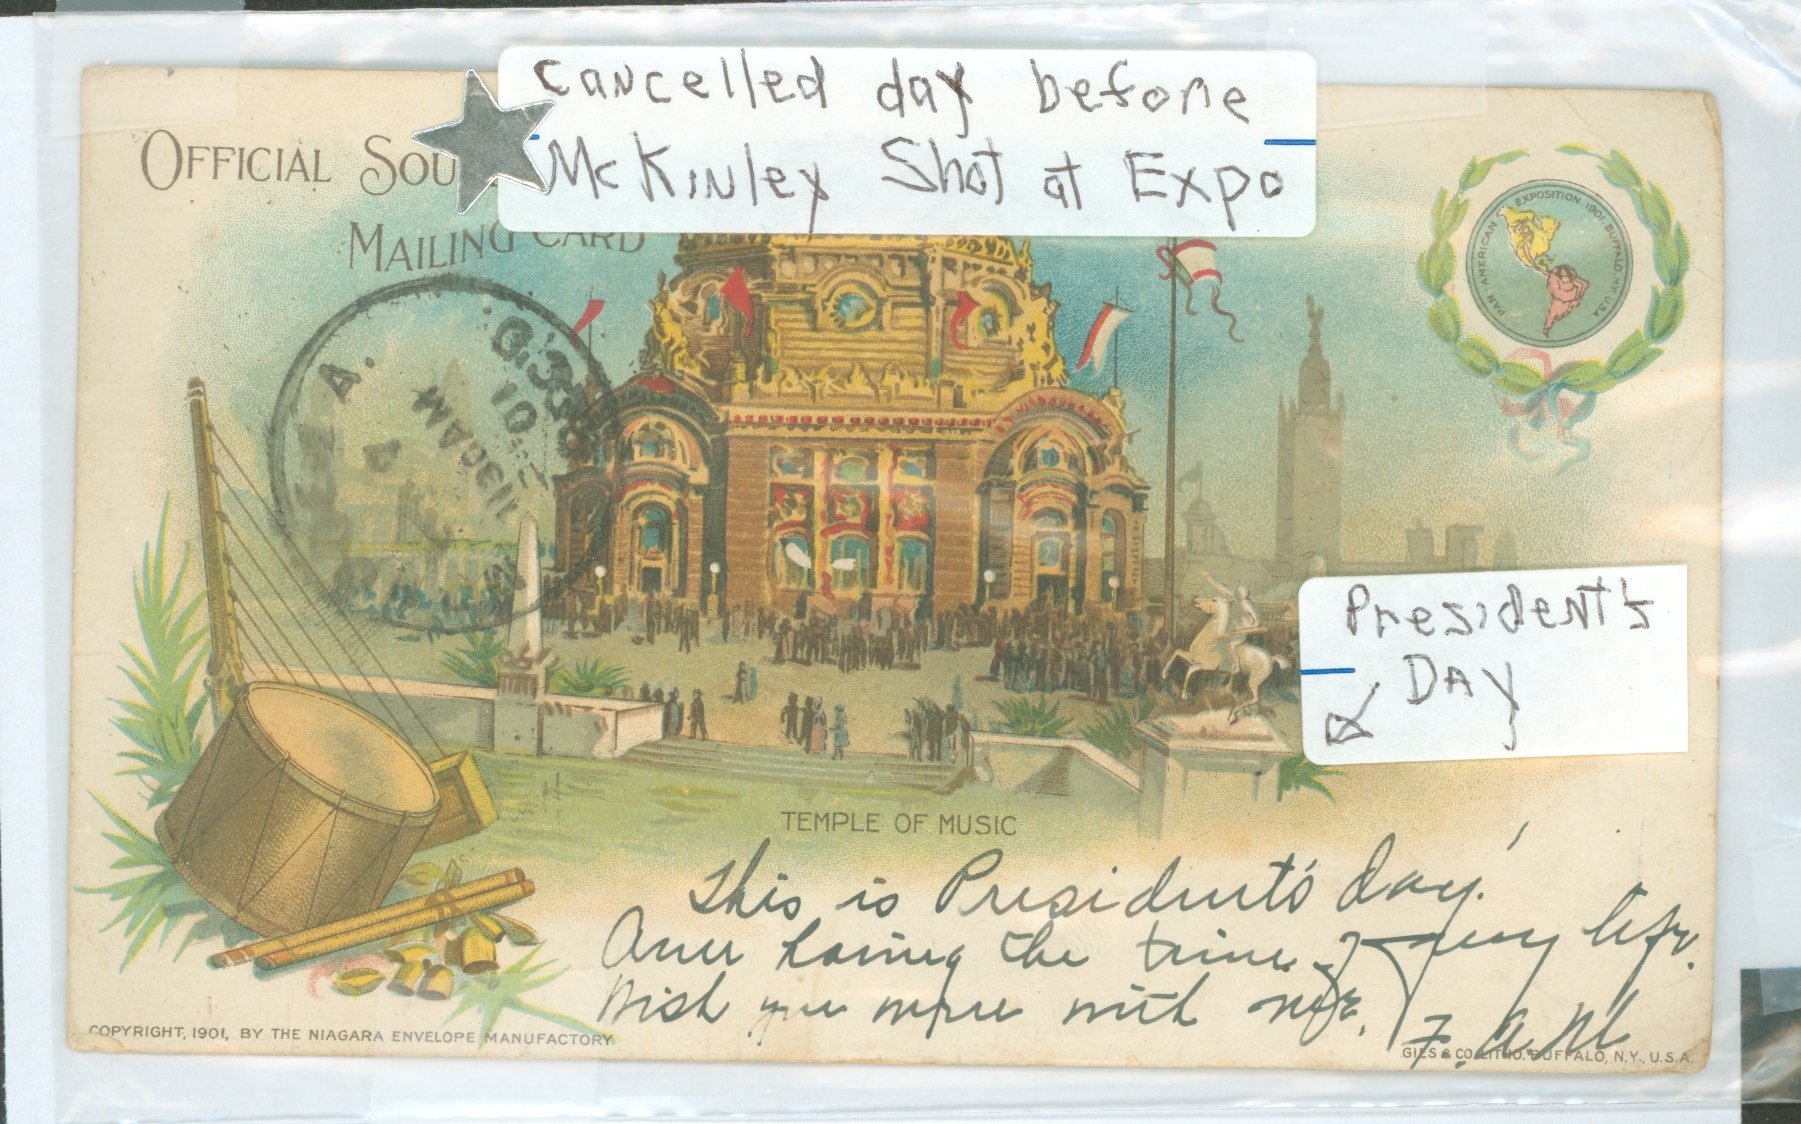 cancelled day before
McKinley Shot at Expo
OFFICIAL SOU
MAILING CARD
PAN AMERICAN EXPOSITION 1901. BUFFALO N.Y. U.S.A.
A.
8:30
10
11:30AM
President's
DAY
TEMPLE OF MUSIC
This is President's day.
Am having the time of my life.
Wish you were with me.
F. A. M.
COPYRIGHT, 1901, BY THE NIAGARA ENVELOPE MANUFACTORY.
GIES & CO. LITHO. BUFFALO, N.Y., U.S.A.